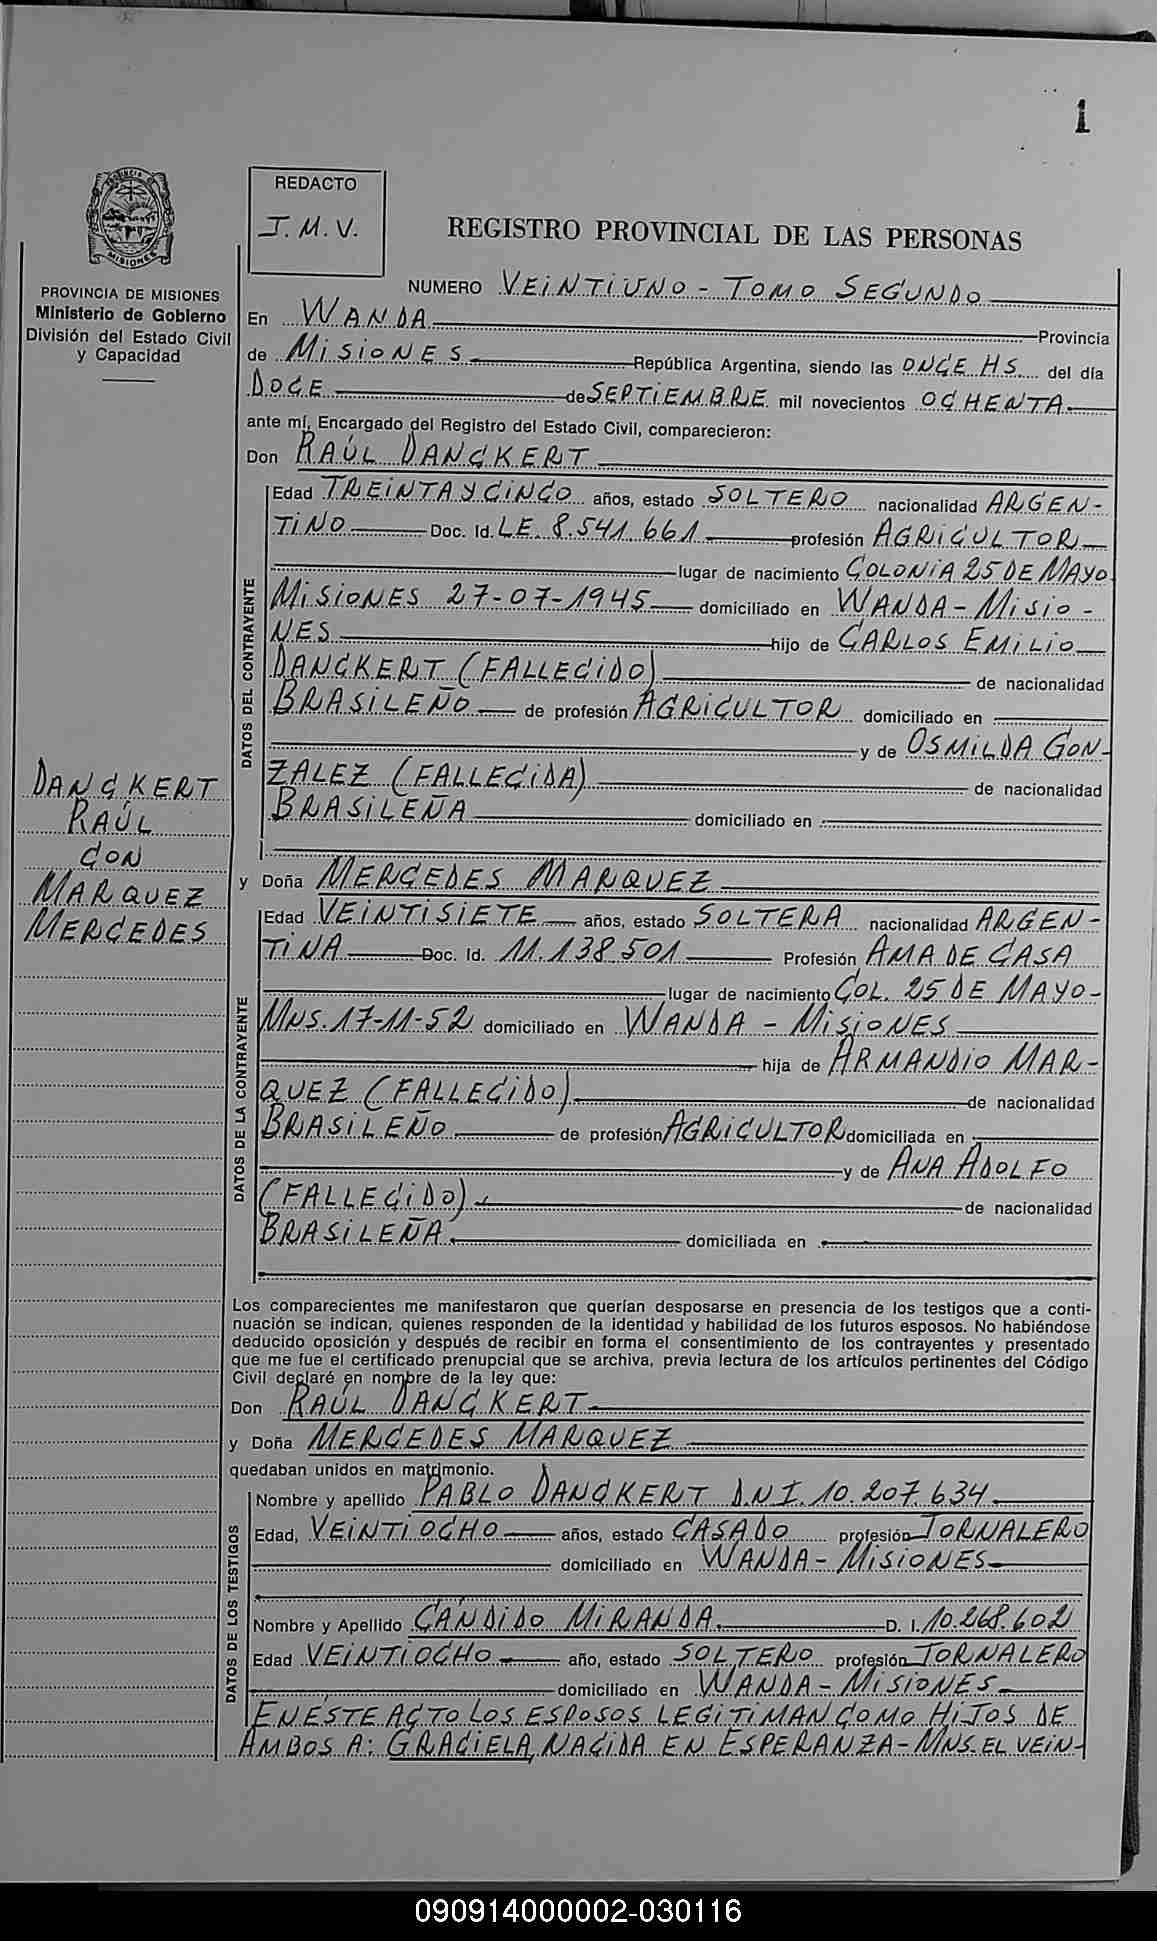 1
PROVINCIA MISIONES
REDACTO
I.M.V.
REGISTRO PROVINCIAL DE LAS PERSONAS
PROVINCIA DE MISIONES
Ministerio de Gobierno
División del Estado Civil
y Capacidad
NUMERO VEINTIUNO - TOMO SEGUNDO
En WANDA Provincia
de MISIONES República Argentina, siendo las ONCE HS. del día
DOCE de SEPTIEMBRE mil novecientos OCHENTA
ante mí, Encargado del Registro del Estado Civil, comparecieron:
Don RAÚL DANCKERT
DATOS DEL CONTRAYENTE
Edad TREINTA Y CINCO años, estado SOLTERO nacionalidad ARGEN-
TINO Doc. Id. LE. 8.541.661 profesión AGRICULTOR
lugar de nacimiento COLONIA 25 DE MAYO
MISIONES 27-07-1945 domiciliado en WANDA - MISIO-
NES hijo de CARLOS EMILIO
DANCKERT (FALLECIDO) de nacionalidad
BRASILEÑO de profesión AGRICULTOR domiciliado en
y de OSMILDA GON-
ZALEZ (FALLECIDA) de nacionalidad
BRASILEÑA domiciliado en
DANCKERT
RAÚL
CON
MARQUEZ
MERCEDES
y Doña MERCEDES MARQUEZ
DATOS DE LA CONTRAYENTE
Edad VEINTISIETE años, estado SOLTERA nacionalidad ARGEN-
TINA Doc. Id. 11.138.501 Profesión AMA DE CASA
lugar de nacimiento COL. 25 DE MAYO-
MNS. 17-11-52 domiciliado en WANDA - MISIONES
hija de ARMANDIO MAR-
QUEZ (FALLECIDO) de nacionalidad
BRASILEÑO de profesión AGRICULTOR domiciliada en
y de ANA ADOLFO
(FALLECIDO) de nacionalidad
BRASILEÑA. domiciliada en
Los comparecientes me manifestaron que querían desposarse en presencia de los testigos que a conti-
nuación se indican, quienes responden de la identidad y habilidad de los futuros esposos. No habiéndose
deducido oposición y después de recibir en forma el consentimiento de los contrayentes y presentado
que me fue el certificado prenupcial que se archiva, previa lectura de los artículos pertinentes del Código
Civil declaré en nombre de la ley que:
Don RAÚL DANCKERT
y Doña MERCEDES MARQUEZ
quedaban unidos en matrimonio.
DATOS DE LOS TESTIGOS
Nombre y apellido PABLO DANCKERT D.N.I. 10.207.634
Edad, VEINTIOCHO años, estado CASADO profesión JORNALERO
domiciliado en WANDA - MISIONES
Nombre y Apellido CANDIDO MIRANDA. D. I. 10.268.602
Edad VEINTIOCHO año, estado SOLTERO profesión JORNALERO
domiciliado en WANDA - MISIONES
EN ESTE ACTO LOS ESPOSOS LEGITIMAN COMO HIJOS DE
AMBOS A: GRACIELA, NACIDA EN ESPERANZA - MNS. EL VEIN-
090914000002-030116